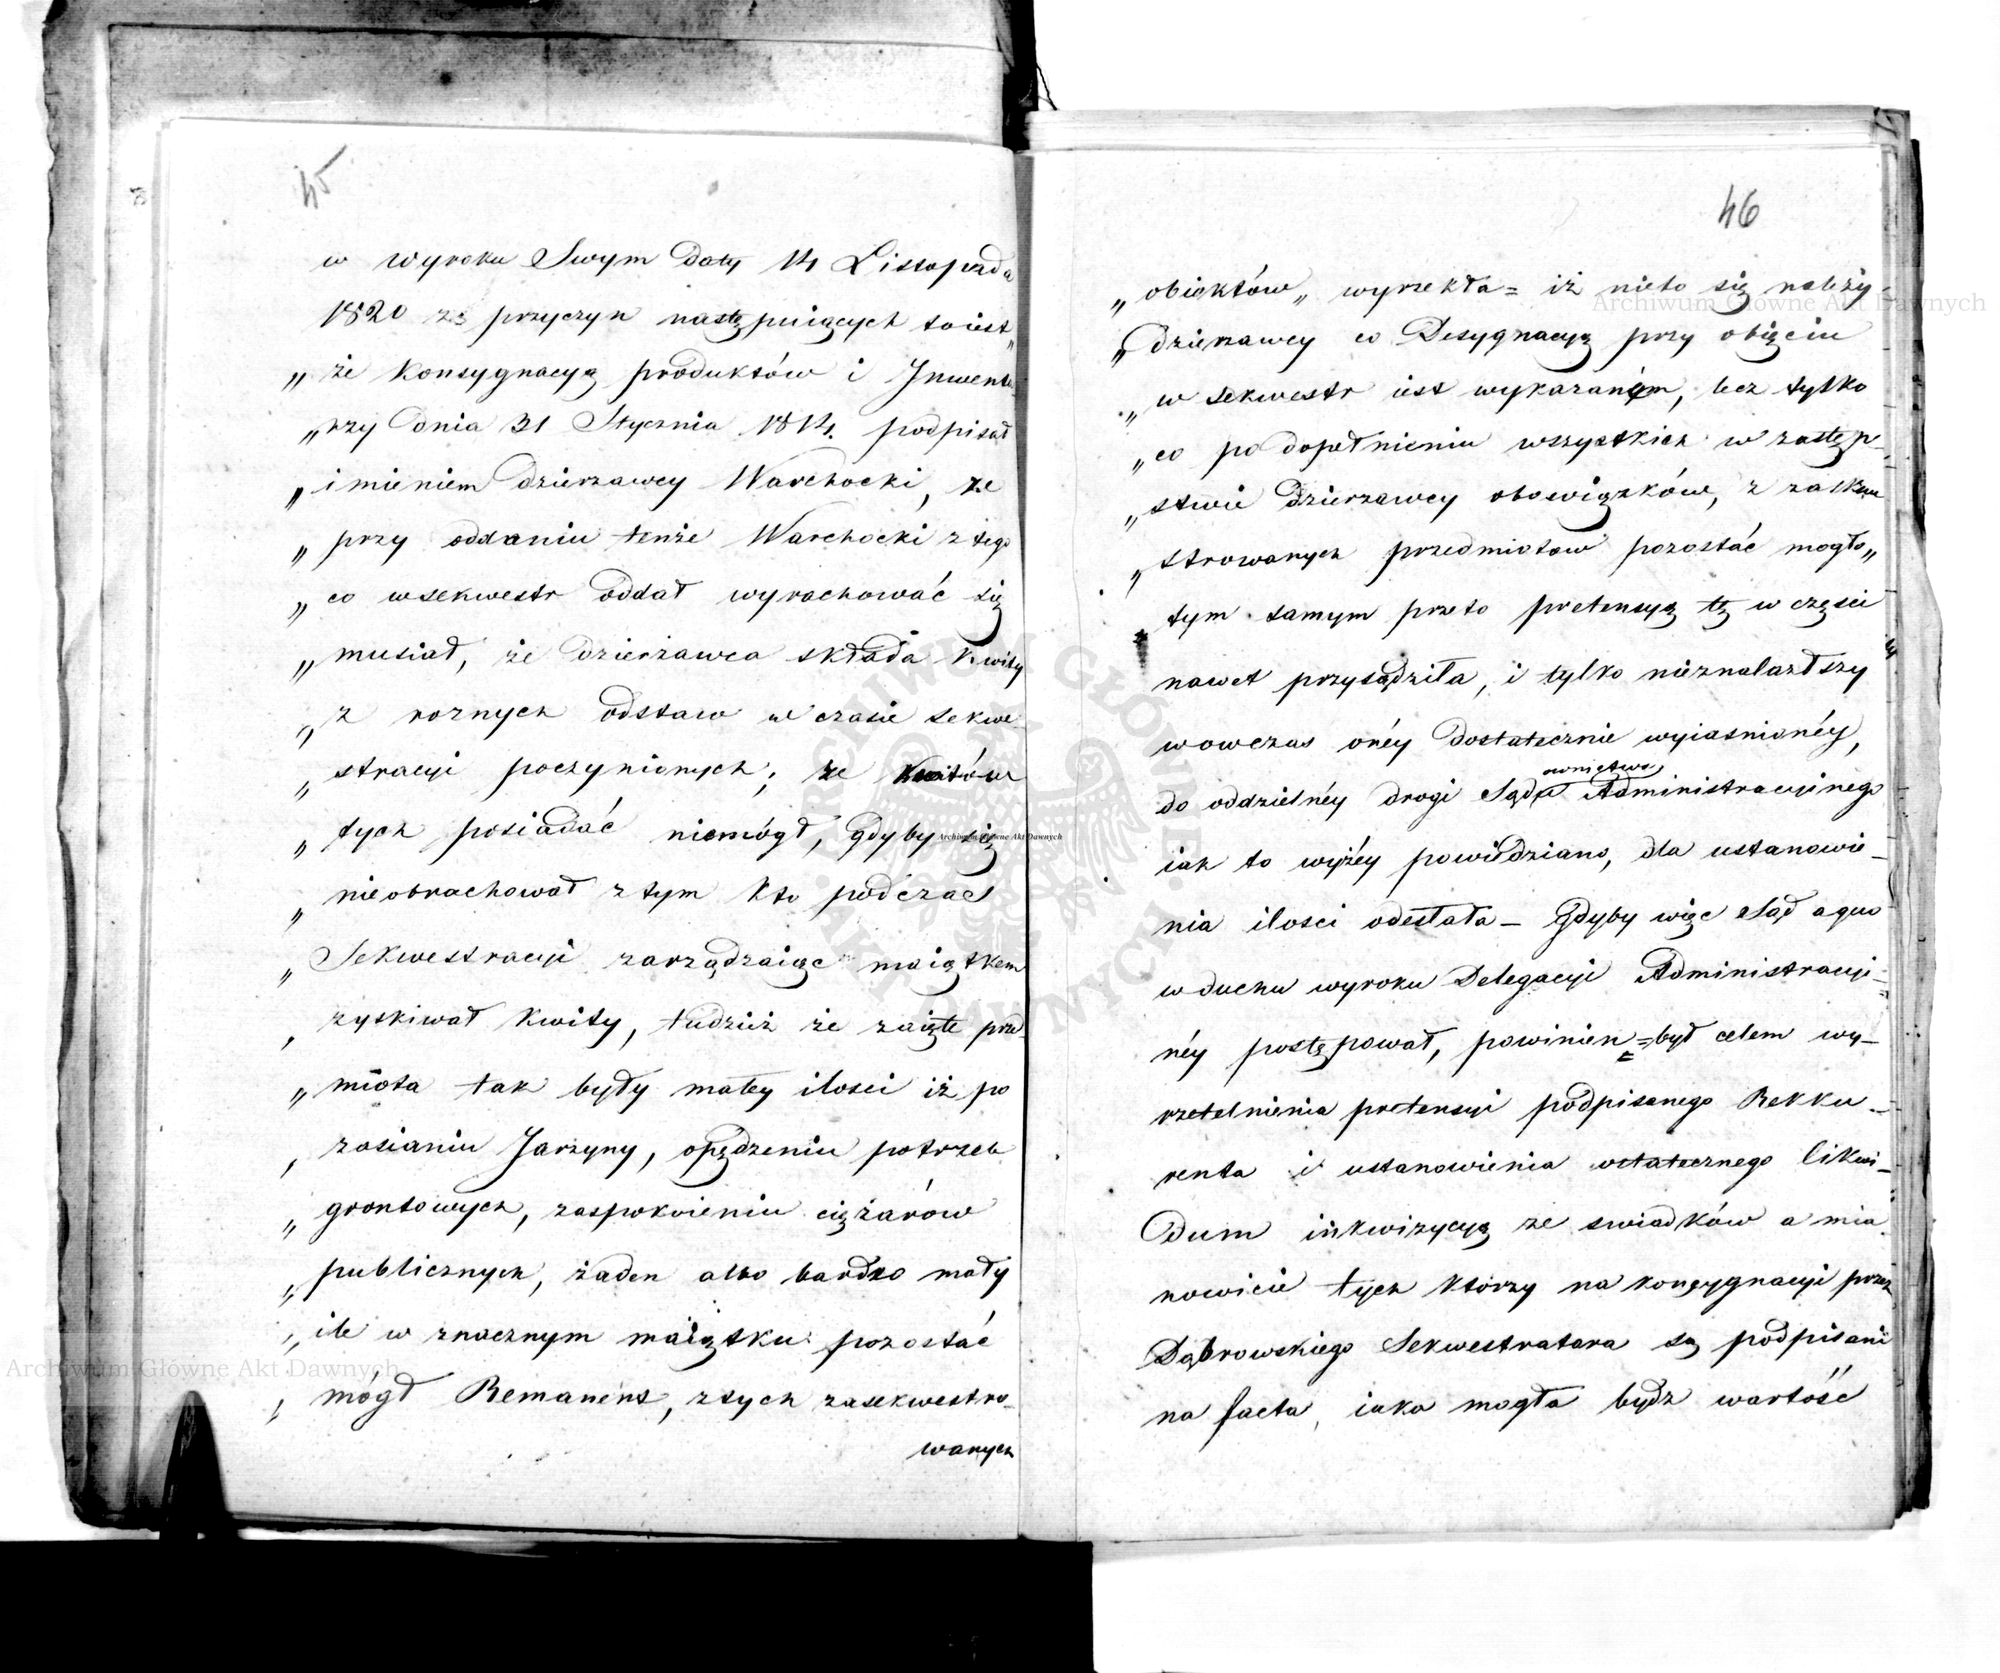 45
w wyroku Swym Daty 14 Listopada
1820 zs przyczyn następuiących toiest
„ że Konsygnacyą produktów i Inwenta-
„ rzy Dnia 31 Stycznia 1814. podpisał
„ imieniem Dzierzawcy Warchocki, że
„ przy oddaniu tenże Warchocki z tego
„ co wsekwestr oddał wyrachować się
„ musiał, że Dzierżawca składa Kwity
„ z roznych odstaw w czasie sekwe
„ stracyi poczynionych; że Kwitów
„ tych posiadać niemógł, gdyby się
„ nieobrachował z tym Kto podczas
„ Sekwestracyi zarządzaiąc maiątkem
, zyskiwał Kwity, tudzież że zaięte prze-
„ miota tak były małey ilosci iż po
, zasianiu Jarzyny, opędzeniu potrzeb
„ grontowych, zaspokoieniu ciężarów
„ publicznych, żaden albo bardzo mały
, ile w znacznym maiątku pozostać
, mógł Remanens, ztych zasekwestro-
wanych
46
„ obiektów„ wyrzekła = iż nieto się należy
„ Dzierzawcy co Desygnacyą przy obięciu
„ w sekwestr iest wykazanem, lecz tylko
„ co po dopełnieniu wszystkich w zastęp-
„ stwie Dzierzawcy obowiązków, z zasekwe
„ strowanych przedmiotow pozostać mogło„
tym samym przeto pretensyą tę w częsci
nawet przysądziła, i tylko nieznalazłszy
wowczas onéy Dostatecznie wyiasnionéy,
do oddzielnéy drogi Sądu Administracyinego
ownictwa
iak to wyżéy powiedziano, dla ustanowie-
nia ilosci odesłała – Gdyby więc Sąd a quo
w duchu wyroku Delegacyi Administracyi-
néy postępował, powinien = był celem wy-
rzetelnienia pretensyi podpisanego Rekku-
renta i ustanowienia ostatecznego likwi-
Dum inkwizycyą ze swiadków a mia
nowicie tych Ktorzy na konsygnacyi przez
Dąbrowskiego Sekwestratara są podpisani
na facta, iaka mogła bydz wartość